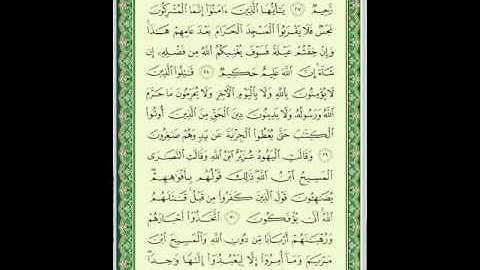 رَّحِيمٌ ٢٧ يَٰٓأَيُّهَا ٱلَّذِينَ ءَامَنُوٓا۟ إِنَّمَا ٱلْمُشْرِكُونَ
نَجَسٌ فَلَا يَقْرَبُوا۟ ٱلْمَسْجِدَ ٱلْحَرَامَ بَعْدَ عَامِهِمْ هَٰذَا
وَإِنْ خِفْتُمْ عَيْلَةً فَسَوْفَ يُغْنِيكُمُ ٱللَّهُ مِن فَضْلِهِۦٓ إِن
شَآءَ إِنَّ ٱللَّهَ عَلِيمٌ حَكِيمٌ ٢٨ قَٰتِلُوا۟ ٱلَّذِينَ
لَا يُؤْمِنُونَ بِٱللَّهِ وَلَا بِٱلْيَوْمِ ٱلْءَاخِرِ وَلَا يُحَرِّمُونَ مَا حَرَّمَ
ٱللَّهُ وَرَسُولُهُۥ وَلَا يَدِينُونَ دِينَ ٱلْحَقِّ مِنَ ٱلَّذِينَ أُوتُوا۟
ٱلْكِتَٰبَ حَتَّىٰ يُعْطُوا۟ ٱلْجِزْيَةَ عَن يَدٍ وَهُمْ صَٰغِرُونَ
٢٩ وَقَالَتِ ٱلْيَهُودُ عُزَيْرٌ ٱبْنُ ٱللَّهِ وَقَالَتِ ٱلنَّصَٰرَى
ٱلْمَسِيحُ ٱبْنُ ٱللَّهِ ذَٰلِكَ قَوْلُهُم بِأَفْوَٰهِهِمْ
يُضَٰهِـُٔونَ قَوْلَ ٱلَّذِينَ كَفَرُوا۟ مِن قَبْلُ قَٰتَلَهُمُ
ٱللَّهُ أَنَّىٰ يُؤْفَكُونَ ٣٠ ٱتَّخَذُوٓا۟ أَحْبَارَهُمْ
وَرُهْبَٰنَهُمْ أَرْبَابًا مِّن دُونِ ٱللَّهِ وَٱلْمَسِيحَ ٱبْنَ
مَرْيَمَ وَمَآ أُمِرُوٓا۟ إِلَّا لِيَعْبُدُوٓا۟ إِلَٰهًا وَٰحِدًا